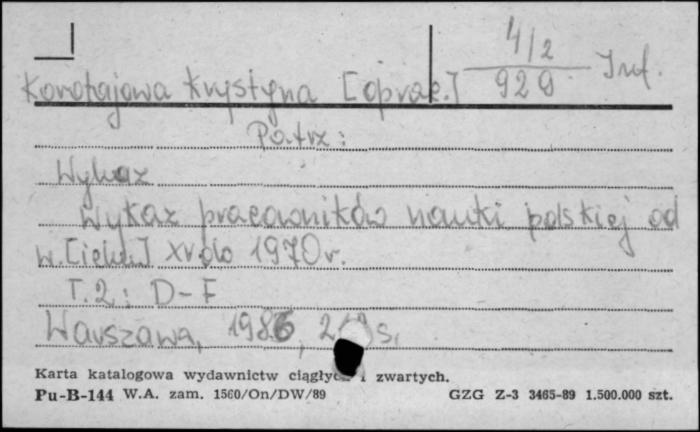 4/2
929 Inf.
Korotajowa Krystyna [oprac.]
Patrz:
Wykaz
Wykaz pracowników nauki polskiej od
w. [ieku] XV do 1970 r.
T. 2: D-F
Warszawa, 1986, s.
Karta katalogowa wydawnictw ciągłych i zwartych.
Pu-B-144 W.A. zam. 1560/On/DW/89 GZG Z-3 3465-89 1.500.000 szt.